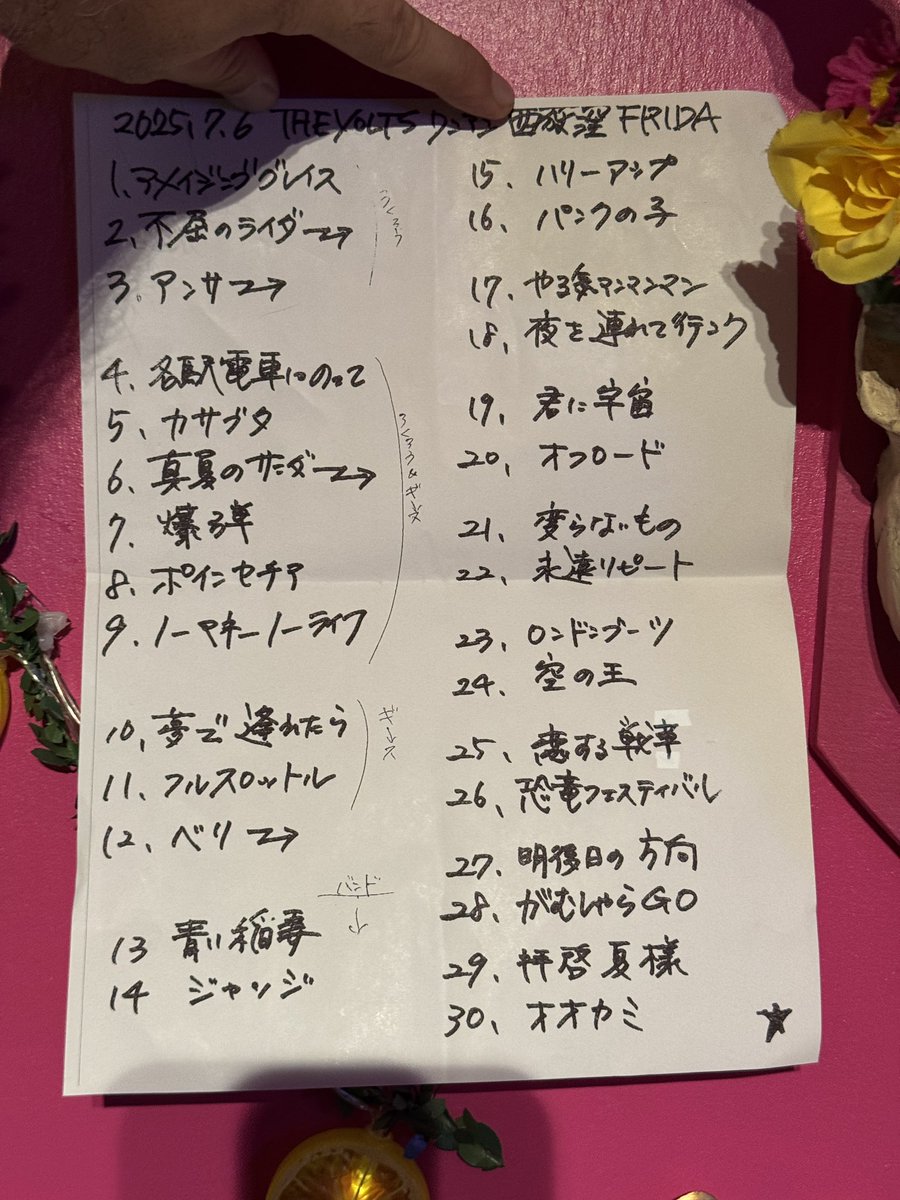 2025.7.6 THE VOLTS ワンマン 西荻窪 FRIDA
1.アメイジンググレイス
2、不屈のライダー→
3.アンサー→
4、名駅電車にのって
5、カサブタ
6、真夏のサンダー→
7、爆弾
8、ポインセチア
9、ノーマネーノーライフ
10、夢で逢えたら
11、フルスロットル
12、ベリー→
バンド
↓
13 青い稲妻
14 ジャッジ
15、ハリーアップ
16、パンクの子
17、やる気マンマンマン
18、夜を連れて行こう
19、君に宇宙
20、オフロード
21、変らないもの
22、永遠リピート
23、ロンドンブーツ
24、空の王
25、恋する戦車
26、恐竜フェスティバル
27、明後日の方向
28、がむしゃらGO
29、拝啓夏様
30、オオカミ